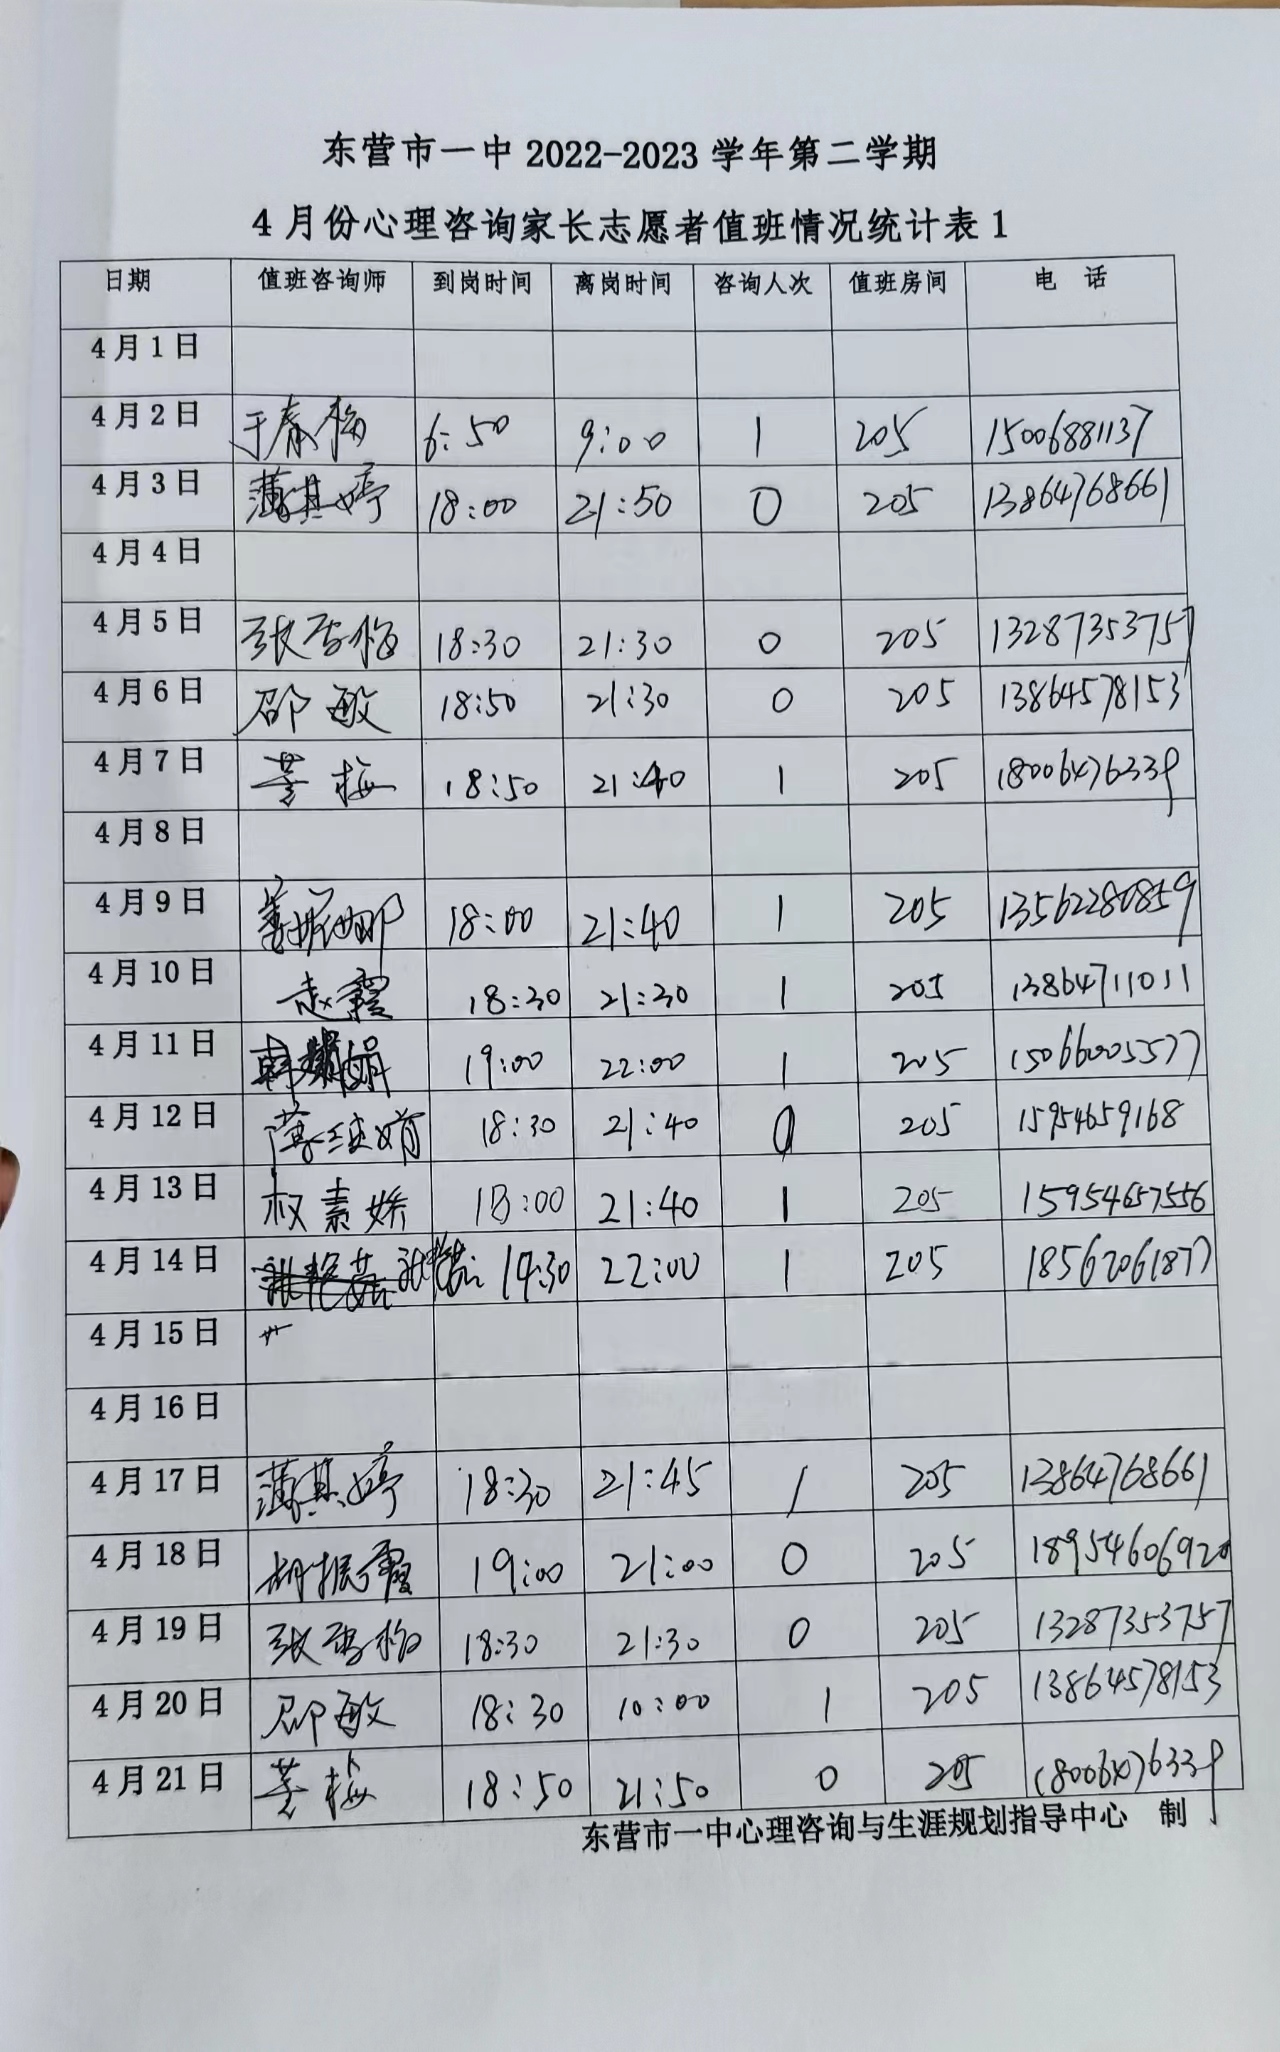 东营市一中 2022-2023 学年第二学期
4 月份心理咨询家长志愿者值班情况统计表 1
日期 值班咨询师 到岗时间 离岗时间 咨询人次 值班房间 电 话
4 月 1 日
4 月 2 日 于春梅 6:50 9:00 1 205 15006881137
4 月 3 日 薄其婷 18:00 21:50 0 205 13864768661
4 月 4 日
4 月 5 日 张雪梅 18:30 21:30 0 205 13287353757
4 月 6 日 邵敏 18:50 21:30 0 205 13864578153
4 月 7 日 黄梅 18:50 21:40 1 205 18006476339
4 月 8 日
4 月 9 日 18:00 21:40 1 205 13562280859
4 月 10 日 赵霞 18:30 21:30 1 205 13864711011
4 月 11 日 19:00 22:00 1 205 15066005577
4 月 12 日 18:30 21:40 0 205 15954659168
4 月 13 日 权素娇 18:00 21:40 1 205 15954657556
4 月 14 日 22:00 1 205 18562061877
4 月 15 日
4 月 16 日
4 月 17 日 薄其婷 18:30 21:45 1 205 13864768661
4 月 18 日 胡振霞 19:00 21:00 0 205 18954606920
4 月 19 日 张雪梅 18:30 21:30 0 205 13287353757
4 月 20 日 邵敏 18:30 10:00 1 205 13864578153
4 月 21 日 黄梅 18:50 21:50 0 205 18006476339
东营市一中心理咨询与生涯规划指导中心 制